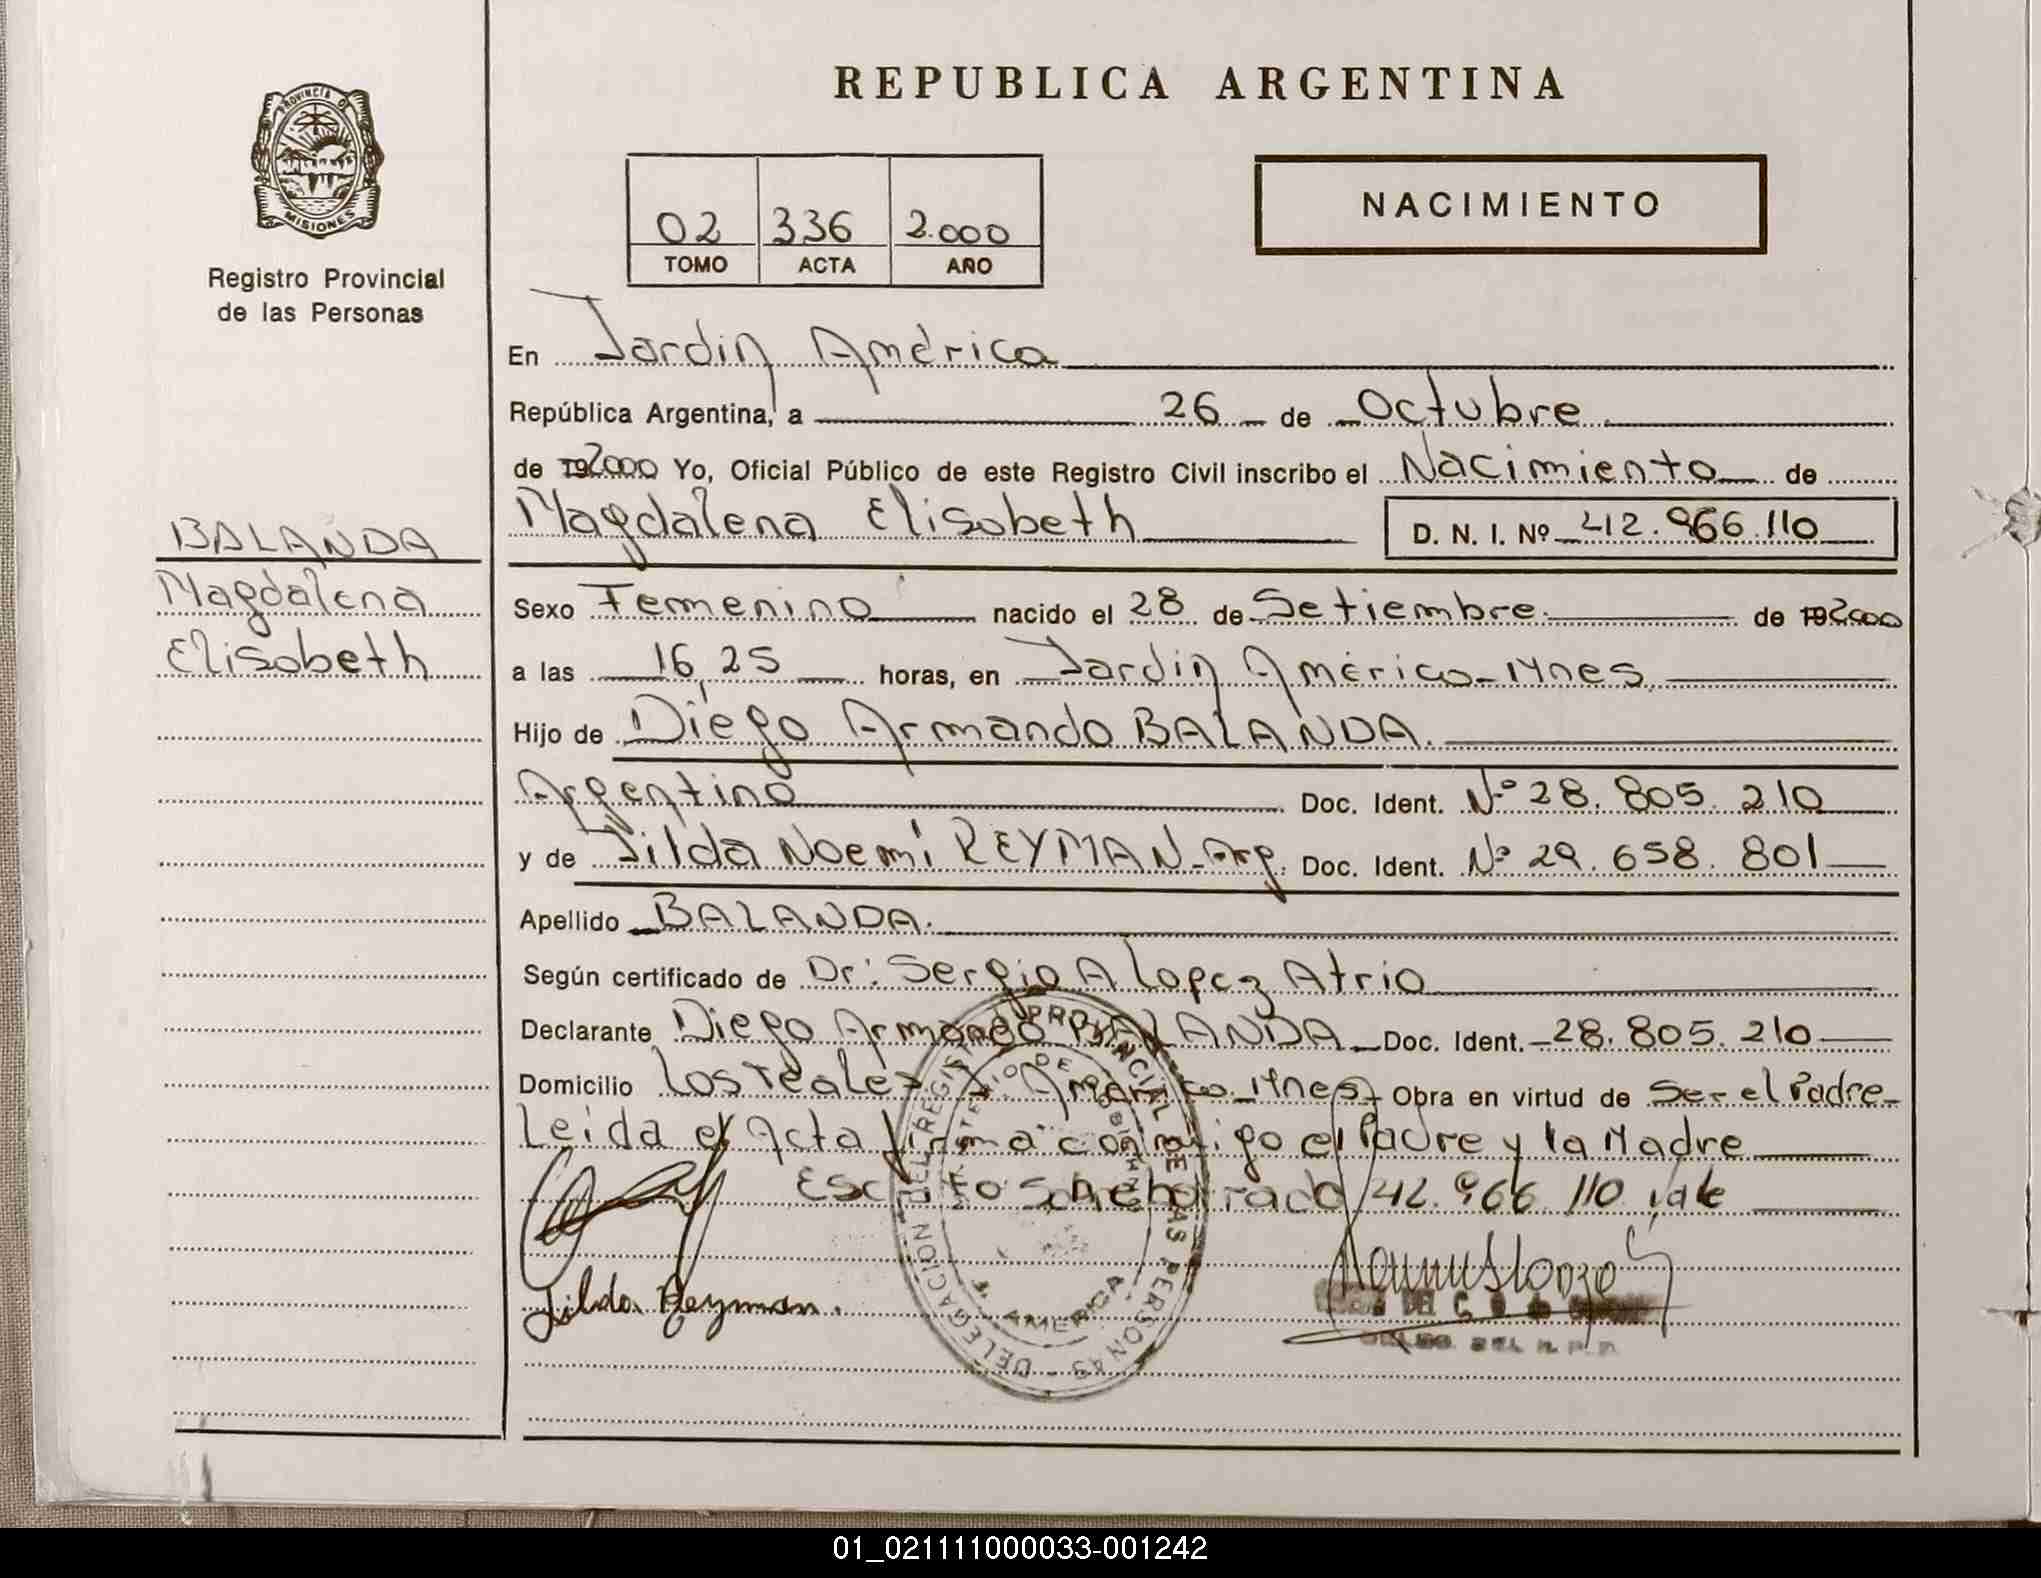 REPUBLICA ARGENTINA
PROVINCIA D
MISIONES
Registro Provincial
de las Personas
NACIMIENTO
02 336 2.000
TOMO ACTA AÑO
En Jardin América
República Argentina, a 26 de Octubre
de 192000 Yo, Oficial Público de este Registro Civil inscribo el Nacimiento de
Magdalena Elisabeth D. N. I. Nº 42.966.110
BALANDA
Magdalena
Elisabeth
Sexo Femenino nacido el 28 de Setiembre de 192000
a las 16,25 horas, en Jardin América-Mnes.
Hijo de Diego Armando BALANDA.
Argentino Doc. Ident. Nº 28.805.210
y de Jilda Noemi REYMAN-Arg. Doc. Ident. Nº 29.658.801
Apellido BALANDA.
Según certificado de Dr: Sergio A Lopez Atrio
Declarante Diego Armando BALANDA Doc. Ident. 28.805.210
Domicilio Los Teales J. America-Mnes Obra en virtud de Ser el Padre-
Leida el Acta firma conmigo el Padre y la Madre
Escrito Sobreborrado 42.966.110 vale
Jilda Reyman.
DELEGACION DEL REGISTRO PROVINCIAL DE LAS PERSONAS
MINISTERIO DE GOBIERNO
J. AMERICA
01_021111000033-001242